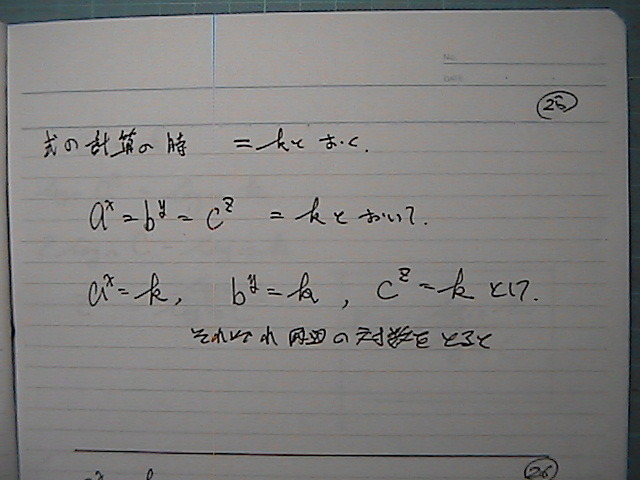 No.
DATE
25
式の計算の時 =kとおく.
a^x=b^y=c^z =kとおいて.
a^x=k, b^y=k, c^z=kとして.
それぞれ両辺の対数をとると
26